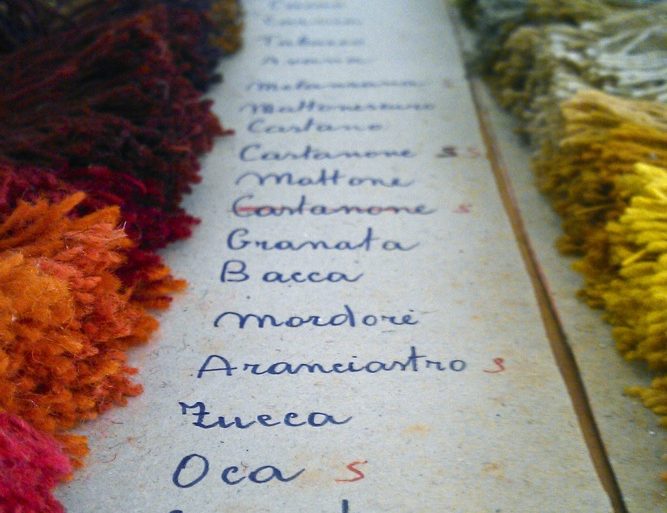 Tabacco
Avana
Melanzana s
Mattonescuro
Castano
Castanone s s
Mattone
Castanone s
Granata
Bacca
Mordorè
Aranciastro s
Zucca
Oca s